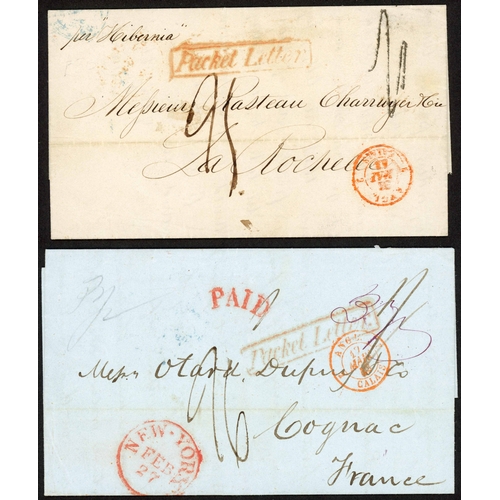 per "Hibernia"
Packet Letter
Messieurs Rasteau Charruyer & Cie
La Rochelle
PAID
Packet Letter
ANGL.
CALAIS
Messrs Otard, Dupuy & Co
Cognac
France
NEW-YORK
FEB
27